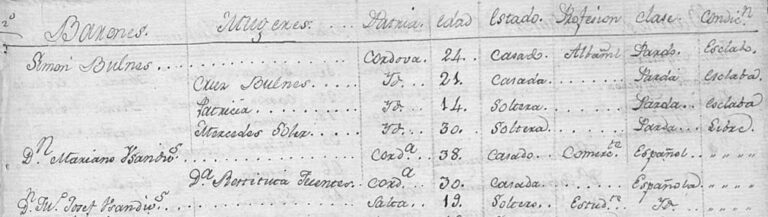 2º Barones. Mugeres. Patria. Edad Estado. Profesion Clase. Condicⁿ
Simon Bulnes Cordova. 24. Casado. Albañil Pardo. Esclabo.
Cruz Bulnes Id. 21. Casada. Parda. Esclaba.
Patricia Id. 14. Soltera. Parda. Esclaba
Mercedes Soler Id. 30. Soltera Parda. Libre.
Dⁿ Mariano Cordª 38. Casado. Comercᵗᵉ Español. " " " "
Dª Fuentes. Cordª 30. Casada. Española " " " "
Dⁿ Josef Salta 19. Soltero. Estudᵗᵉ Id. " " "